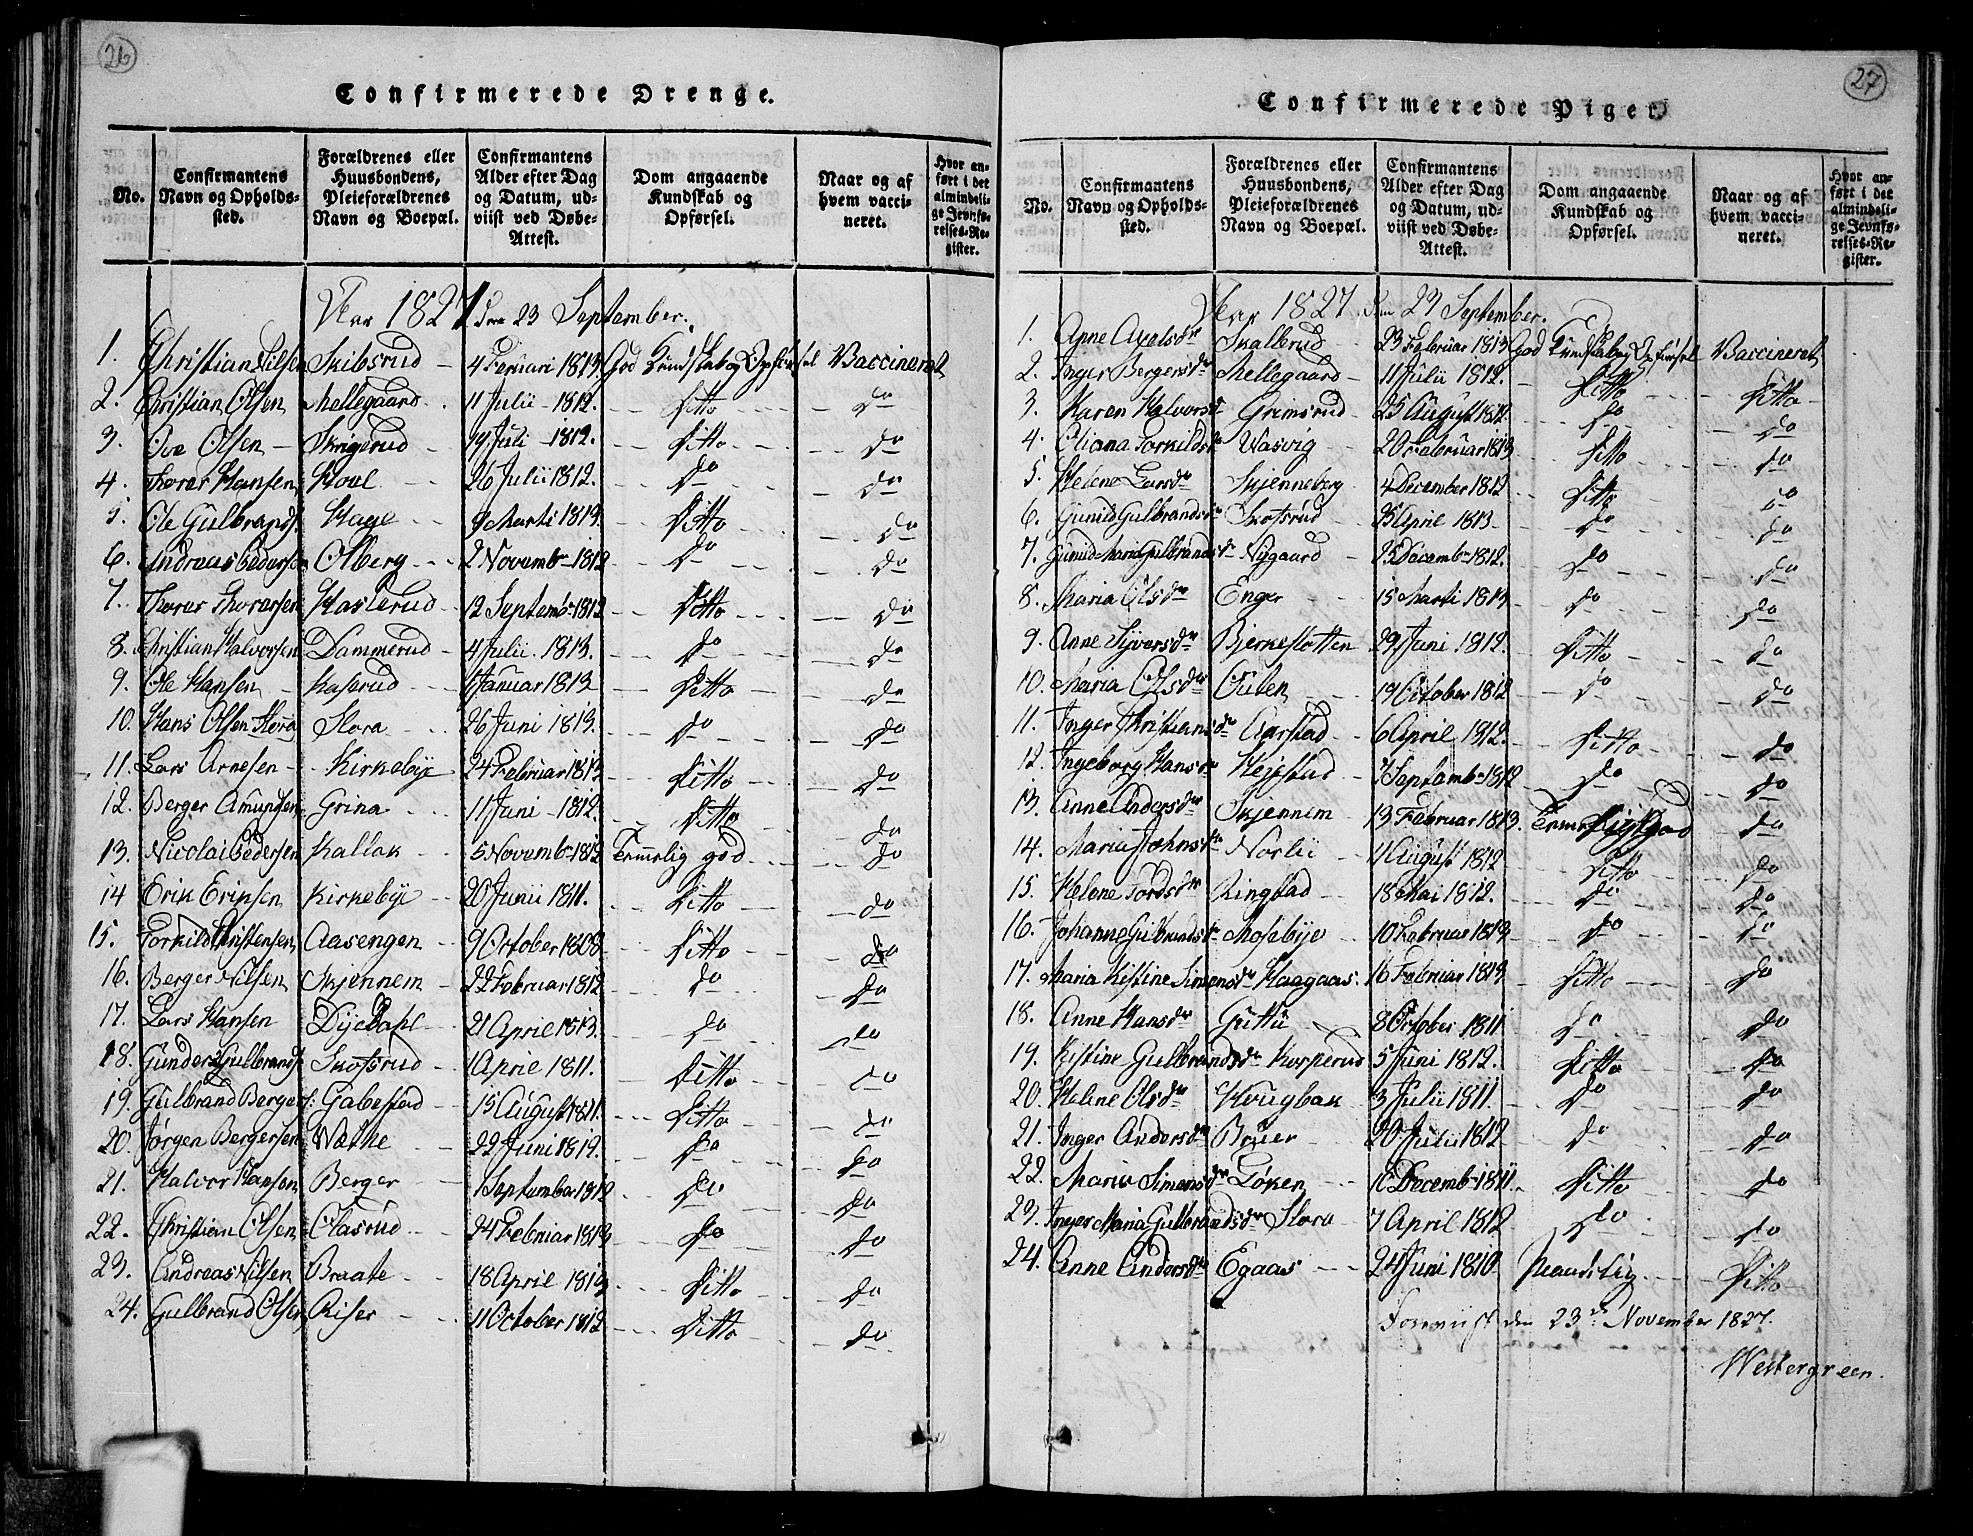 26
Confirmerede Drenge.
No.
Confirmantens Navn og Opholds-sted.
Forældrenes eller Huusbondens, Pleieforældrenes Navn og Boepæl.
Confirmantens Alder efter Dag og Datum, ud-viist ved Døbe-Attest.
Dom angaaende Kundskab og Opførsel.
Naar og af hvem vacci-neret.
Hvor an-ført i det almindeli-ge Jevnfø-relses-Re-gister.
1827 den 23 September.
1. Christian Nilsen Skibsrud 4 Feruari 1813 God Kundskab og Opførsel Vaccineret
2. Christian Olsen Mellegaard 11 Julii 1812. Ditto do
3. Ole Olsen Skrigerud 19 Juli 1812. Ditto do
4. Thorer Hansen Hoel 26 Julii 1812. do do
5. Ole Gulbrands. Hage 9 Marti 1813. Ditto do
6. Andreas Pedersen Olberg 2 Novemb 1812 do do
7. Thorer Thorersen Haslerud 12 Septemb 1812 Ditto do
8. Christian Halvorsen Dammerud 4 Julii 1813. do do
9. Ole Hansen Kaserud 1 Januar 1813 Ditto do
10. Hans Olsen Flora Flora 26 Juni 1813. do do
11. Lars Arnesen Kirkebye 24 Februar 1813 Ditto do
12. Berger Amundsen Grina 11 Juni 1812. Ditto do
13. Nicolai Pedersen Kallak 5 Novemb 1812 Temmelig god do
14 Erik Eriksen Kirkebye 20 Junii 1811. Ditto do
15. Torkild Christensen Aasengen 9 October 1808 Ditto do
16. Berger Nilsen Skjennem 22 Februar 1812 do do
17. Lars Hansen Dijedahl 21 April 1813. do do
18. Gunder Gulbrands. Skofsrud 1 April 1811. Ditto do
19. Gulbrand Bergers: Gabestad 15 August 1811. Ditto do
20. Jørgen Bergersen Næthe 22 Juni 1812. do do
21. Halvor Hansen Berger 1 September 1812 do do
22. Christian Olsen Olasrud 24 Februar 1813 do do
23. Andreas Nilsen Braate 18 April 1813 Ditto do
24. Gulbrand Olsen Riser 11 October 1812 Ditto do
27
Confirmerede Piger.
No.
Confirmantens Navn og Opholds-sted.
Forældrenes eller Huusbondens, Pleieforældrenes Navn og Boepæl.
Confirmantens Alder efter Dag og Datum, ud-viist ved Døbe-Attest.
Dom angaaende Kundskab og Opførsel.
Naar og af hvem vacci-neret.
Hvor an-ført i det almindeli-ge Jevnfø-relses-Re-gister.
1827 den 23 September.
1. Anne Axelsdr Skallerud 23 Februar 1813 God Kundskab og Opførsel Vaccineret
2. Inger Bergersdr Mellegaard 11 Julii 1812. Ditto Ditto
3. Karen Halvorsdr Grimsrud 25 August 1812 do do
4. Oliana Torkildsdr Vasvig 20 Februar 1813 Ditto do
5. Helene Larsdr Skjenneberg 4 December 1812 Ditto do
6. Gunild Gulbrandsdr Skofsrud 25 April 1813 do do
7. Gunild Maria Gulbrandsdr Nygaard 25 Decemb 1812. do do
8. Maria Olsdr Enger 15 Marti 1813 do do
9. Anne Syversdr Bjerkeslotten 29 Juni 1812. Ditto do
10. Maria Olsdr Oulen 19 October 1812 do do
11. Inger Christiansdr Aarstad 6 April 1812. Ditto do
12. Ingeborg Hansdr Hejestad 7 Septemb 1812 do do
13. Anne Andersdr Skjennem 13 Februar 1813. do
14. Maria Johnsdr Norlii 11 August 1812 Ditto do
15. Helene Tordsdr Ringstad 18 Mai 1812. do do
16. Johanne Gulbrandsdr Mosebye 10 Februar 1813 do do
17. Maria Kistine Simonsdr Haagaas. 16 Februar 1813 Ditto do
18. Anne Hansdr Guttu 8 October 1811 do do
19. Kistine Gulbrandsdr Korperud 5 Juni 1812. Ditto do
20. Helene Olsdr Hougbak 3 Julii 1811 do do
21. Inger Andersdr Bruer 20 Julii 1812 do do
22. Maria Simonsdr Løken 10 Decemb 1811. Ditto do
23. Inger Maria Gulbrandsdr Flora 7 April 1812 do do
24. Anne Andersdr Egaas 24 Juni 1810 Maadelig Ditto
Foreviist den 23de November 1827.
Westergreen.